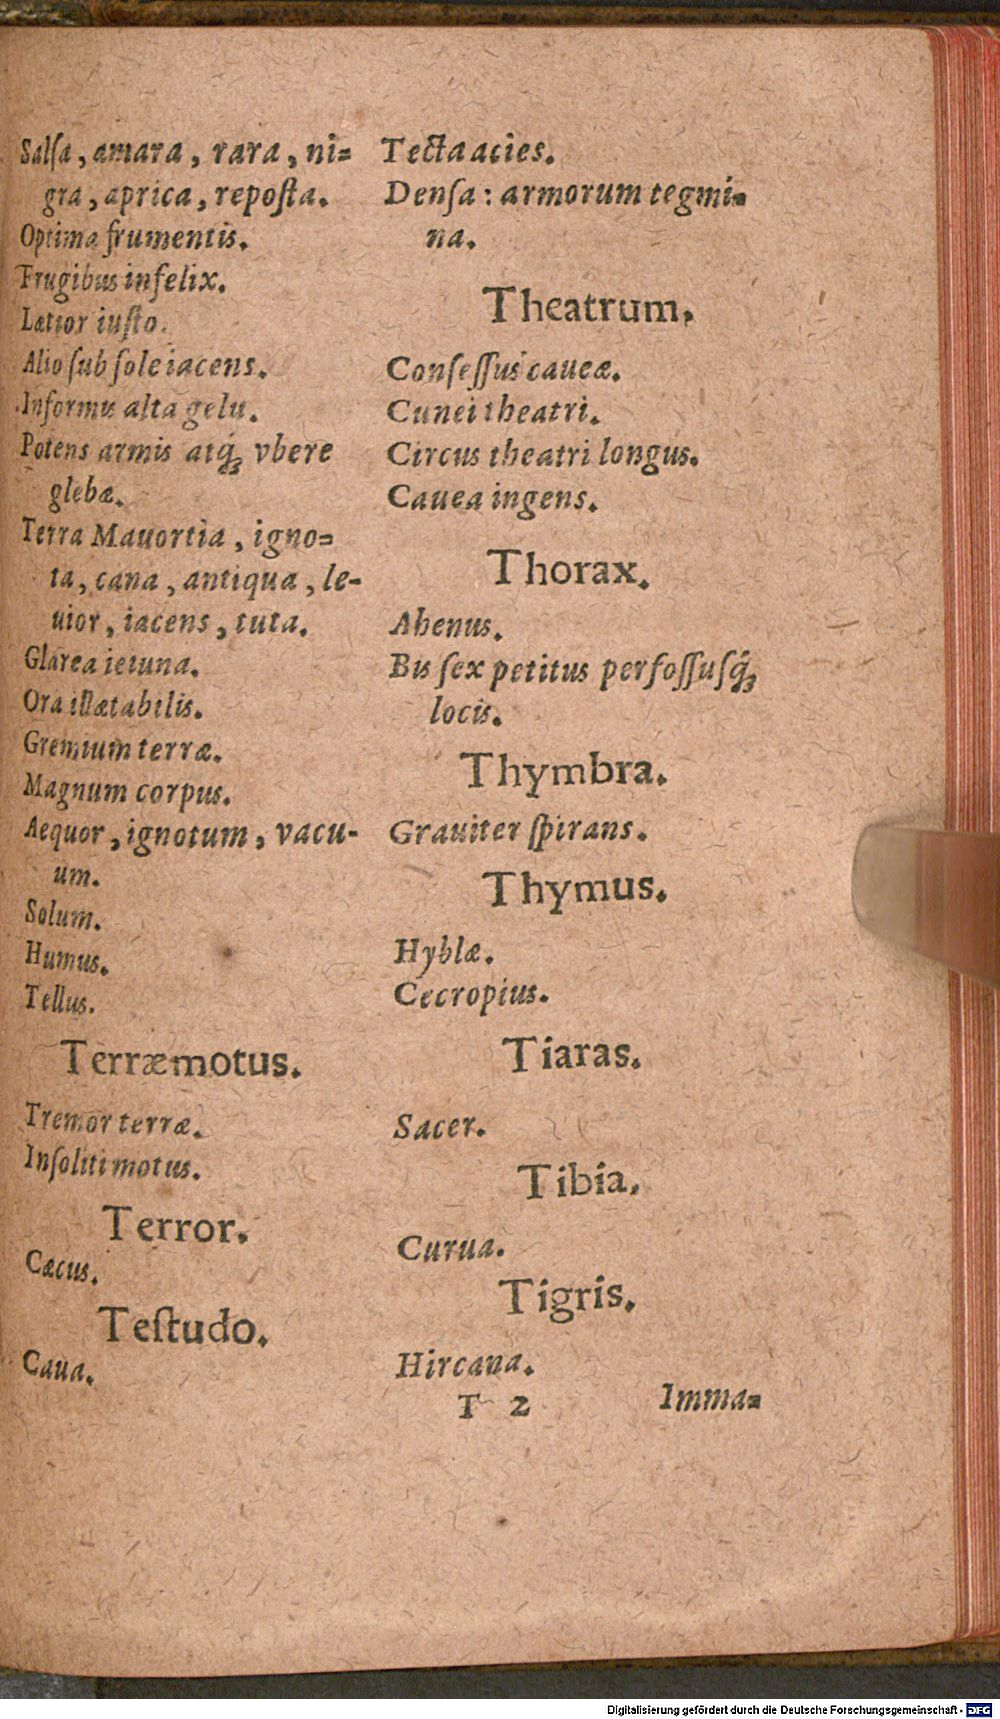 Salſa, amara, rara, ni=
gra, aprica, repoſta.
Optima frumentis.
Frugibus infelix.
Lætior iuſto.
Alio ſub ſole iacens.
Informis alta gelu.
Potens armis atq́; vbere
glebæ.
Terra Mauortia, igno=
ta, cana, antiqua, le-
uior, iacens, tuta.
Glarea ieiuna.
Ora illætabilis.
Gremium terræ.
Magnum corpus.
Aequor, ignotum, vacu-
um.
Solum.
Humus.
Tellus.
Terræmotus.
Tremor terræ.
Inſoliti motus.
Terror.
Cæcus.
Teſtudo.
Caua.
Tecta acies.
Denſa: armorum tegmi=
na.
Theatrum.
Conſeſſus caueæ.
Cunei theatri.
Circus theatri longus.
Cauea ingens.
Thorax.
Ahenus.
Bis ſex petitus perfoſſuſq́;
locis.
Thymbra.
Grauiter ſpirans.
Thymus.
Hyblæ.
Cecropius.
Tiaras.
Sacer.
Tibia.
Curua.
Tigris.
Hircana.
T 2 Imma=
Digitalisierung gefördert durch die Deutsche Forschungsgemeinschaft - DFG